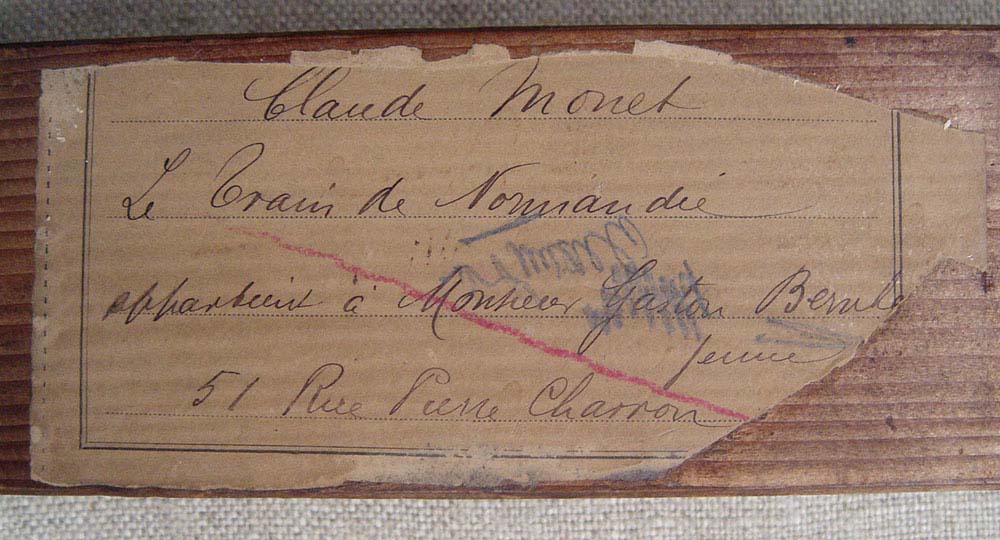 Claude Monet
Le Train de Normandie
appartient à Monsieur Gaston Bernhe
jeune
51 Rue Pierre Charron